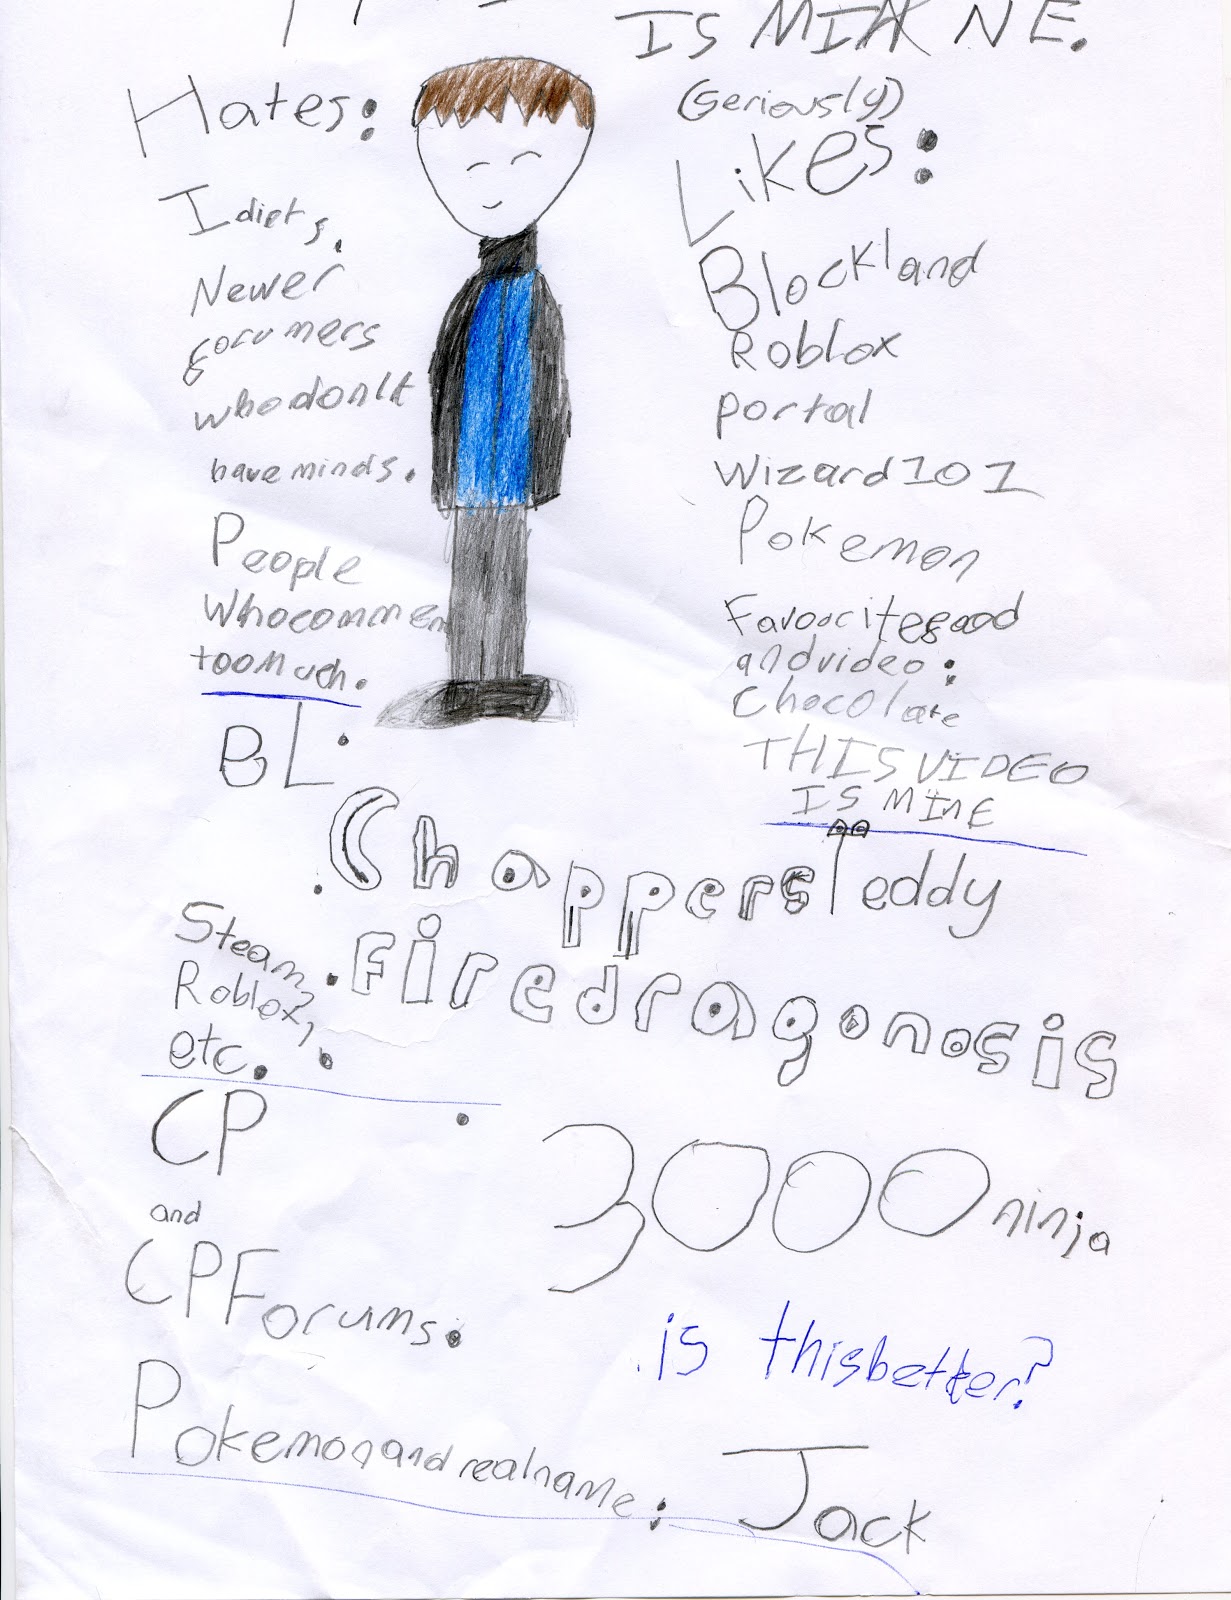 IS MINE.
Hates:
(Seriously)
Likes:
Idiets.
Newer
forumers
who don't
have minds.
People
Who commen
too Much.
Blockland
Roblox
portal
Wizard101
Pokemon
Favoorite food
and video:
Chocolate
THIS VIDEO
IS MINE
BL:
ChappersTeddy
Steam,
Roblox,
etc.:
Firedragonosis
CP
and
CPForums.
3000ninja
is this better?
Pokemon and real name:
Jack